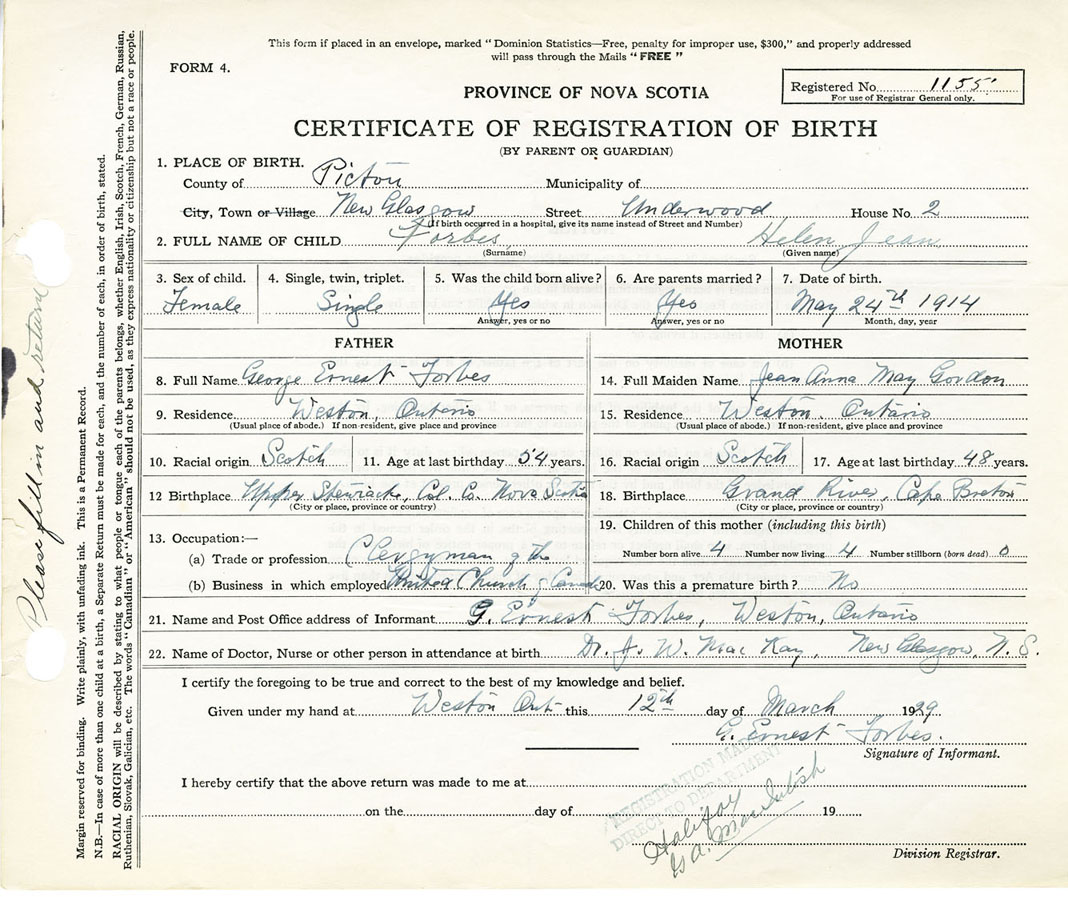 This form if placed in an envelope, marked "Dominion Statistics—Free, penalty for improper use, $300," and properly addressed
will pass through the Mails "FREE"
FORM 4.
Registered No. 1155
For use of Registrar General only.
PROVINCE OF NOVA SCOTIA
CERTIFICATE OF REGISTRATION OF BIRTH
(BY PARENT OR GUARDIAN)
1. PLACE OF BIRTH.
County of Pictou Municipality of
City, Town or Village New Glasgow Street Underwood House No. 2
(If birth occurred in a hospital, give its name instead of Street and Number)
2. FULL NAME OF CHILD Forbes, Helen Jean
(Surname) (Given name)
3. Sex of child. 4. Single, twin, triplet. 5. Was the child born alive? 6. Are parents married? 7. Date of birth.
Female Single Yes Yes May 24th 1914
Answer, yes or no Answer, yes or no Month, day, year
FATHER MOTHER
8. Full Name George Ernest Forbes 14. Full Maiden Name Jean Anna May Gordon
9. Residence Weston, Ontario 15. Residence Weston, Ontario
(Usual place of abode.) If non-resident, give place and province (Usual place of abode.) If non-resident, give place and province
10. Racial origin Scotch 11. Age at last birthday 54 years. 16. Racial origin Scotch 17. Age at last birthday 48 years.
12 Birthplace Upper Stewiacke, Col. Co. Nova Scotia 18. Birthplace Grand River, Cape Breton
(City or place, province or country) (City or place, province or country)
19. Children of this mother (including this birth)
13. Occupation:—
(a) Trade or profession Clergyman of the Number born alive 4 Number now living 4 Number stillborn (born dead) 0
(b) Business in which employed United Church of Canada 20. Was this a premature birth? No
21. Name and Post Office address of Informant G. Ernest Forbes, Weston, Ontario
22. Name of Doctor, Nurse or other person in attendance at birth. Dr. J. W. MacKay, New Glasgow, N. S.
I certify the foregoing to be true and correct to the best of my knowledge and belief.
Given under my hand at Weston Ont this 12th day of March 1939
G. Ernest Forbes.
Signature of Informant.
I hereby certify that the above return was made to me at
on the day of 19
REGISTRATION MADE
DIRECT TO DEPARTMENT
Halifax
MacIntosh
Division Registrar.
Please fill in and return
Margin reserved for binding. Write plainly, with unfading ink. This is a Permanent Record.
N.B.—In case of more than one child at a birth, a Separate Return must be made for each, and the number of each, in order of birth, stated.
RACIAL ORIGIN will be described by stating to what people or tongue each of the parents belongs, whether English, Irish, Scotch, French, German, Russian,
Ruthenian, Slovak, Galician, etc. The words "Canadian" or "American" should not be used, as they express nationality or citizenship but not a race or people.